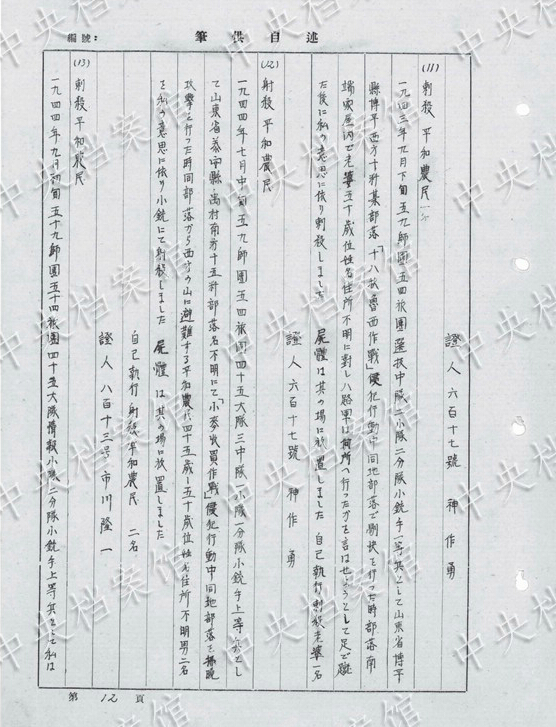 編號：
自述供筆
證人 六百十七號 神作勇
(11) 刺殺平和農民
一九四三年九月下旬五九師團五四旅團選抜中隊二小隊二分隊小銃手一等兵として山東省博平
縣博平西方十粁某部落「十八秋魯西作戰」侵犯行動中同地部落で剔抉を行った時部落南
端家屋內で老婆五十歲位姓名住所不明に對し八路軍は何所へ行ったかを言はせようとして足で蹴
た後に私の意思に依り刺殺しました 屍體は其の場に放置しました 自己執行刺殺老婆一名
證人 六百十七號 神作勇
(12) 射殺平和農民
一九四四年七月中旬五九師團五四旅團四十五大隊三中隊一小隊一分隊小銃手上等兵とし
て山東省泰安縣 村南方十五粁部落名不明にて「小麥收買作戰」侵犯行動中同地部落を拂曉
攻擊を行った時同部落から西方の山に避難する平和農民四十五歲～五十歲位姓名住所不明男二名
を私の意思に依り小銃にて射殺しました 屍體は其の場に放置しました
自己執行射殺平和農民 二名
證人 八百十三号 市川隆一
(13) 刺殺平和農民
一九四四年九月初旬五十九師團五十四旅團四十五大隊情報小隊二分隊小銃手上等兵として私は
第 12 頁
中央档案馆